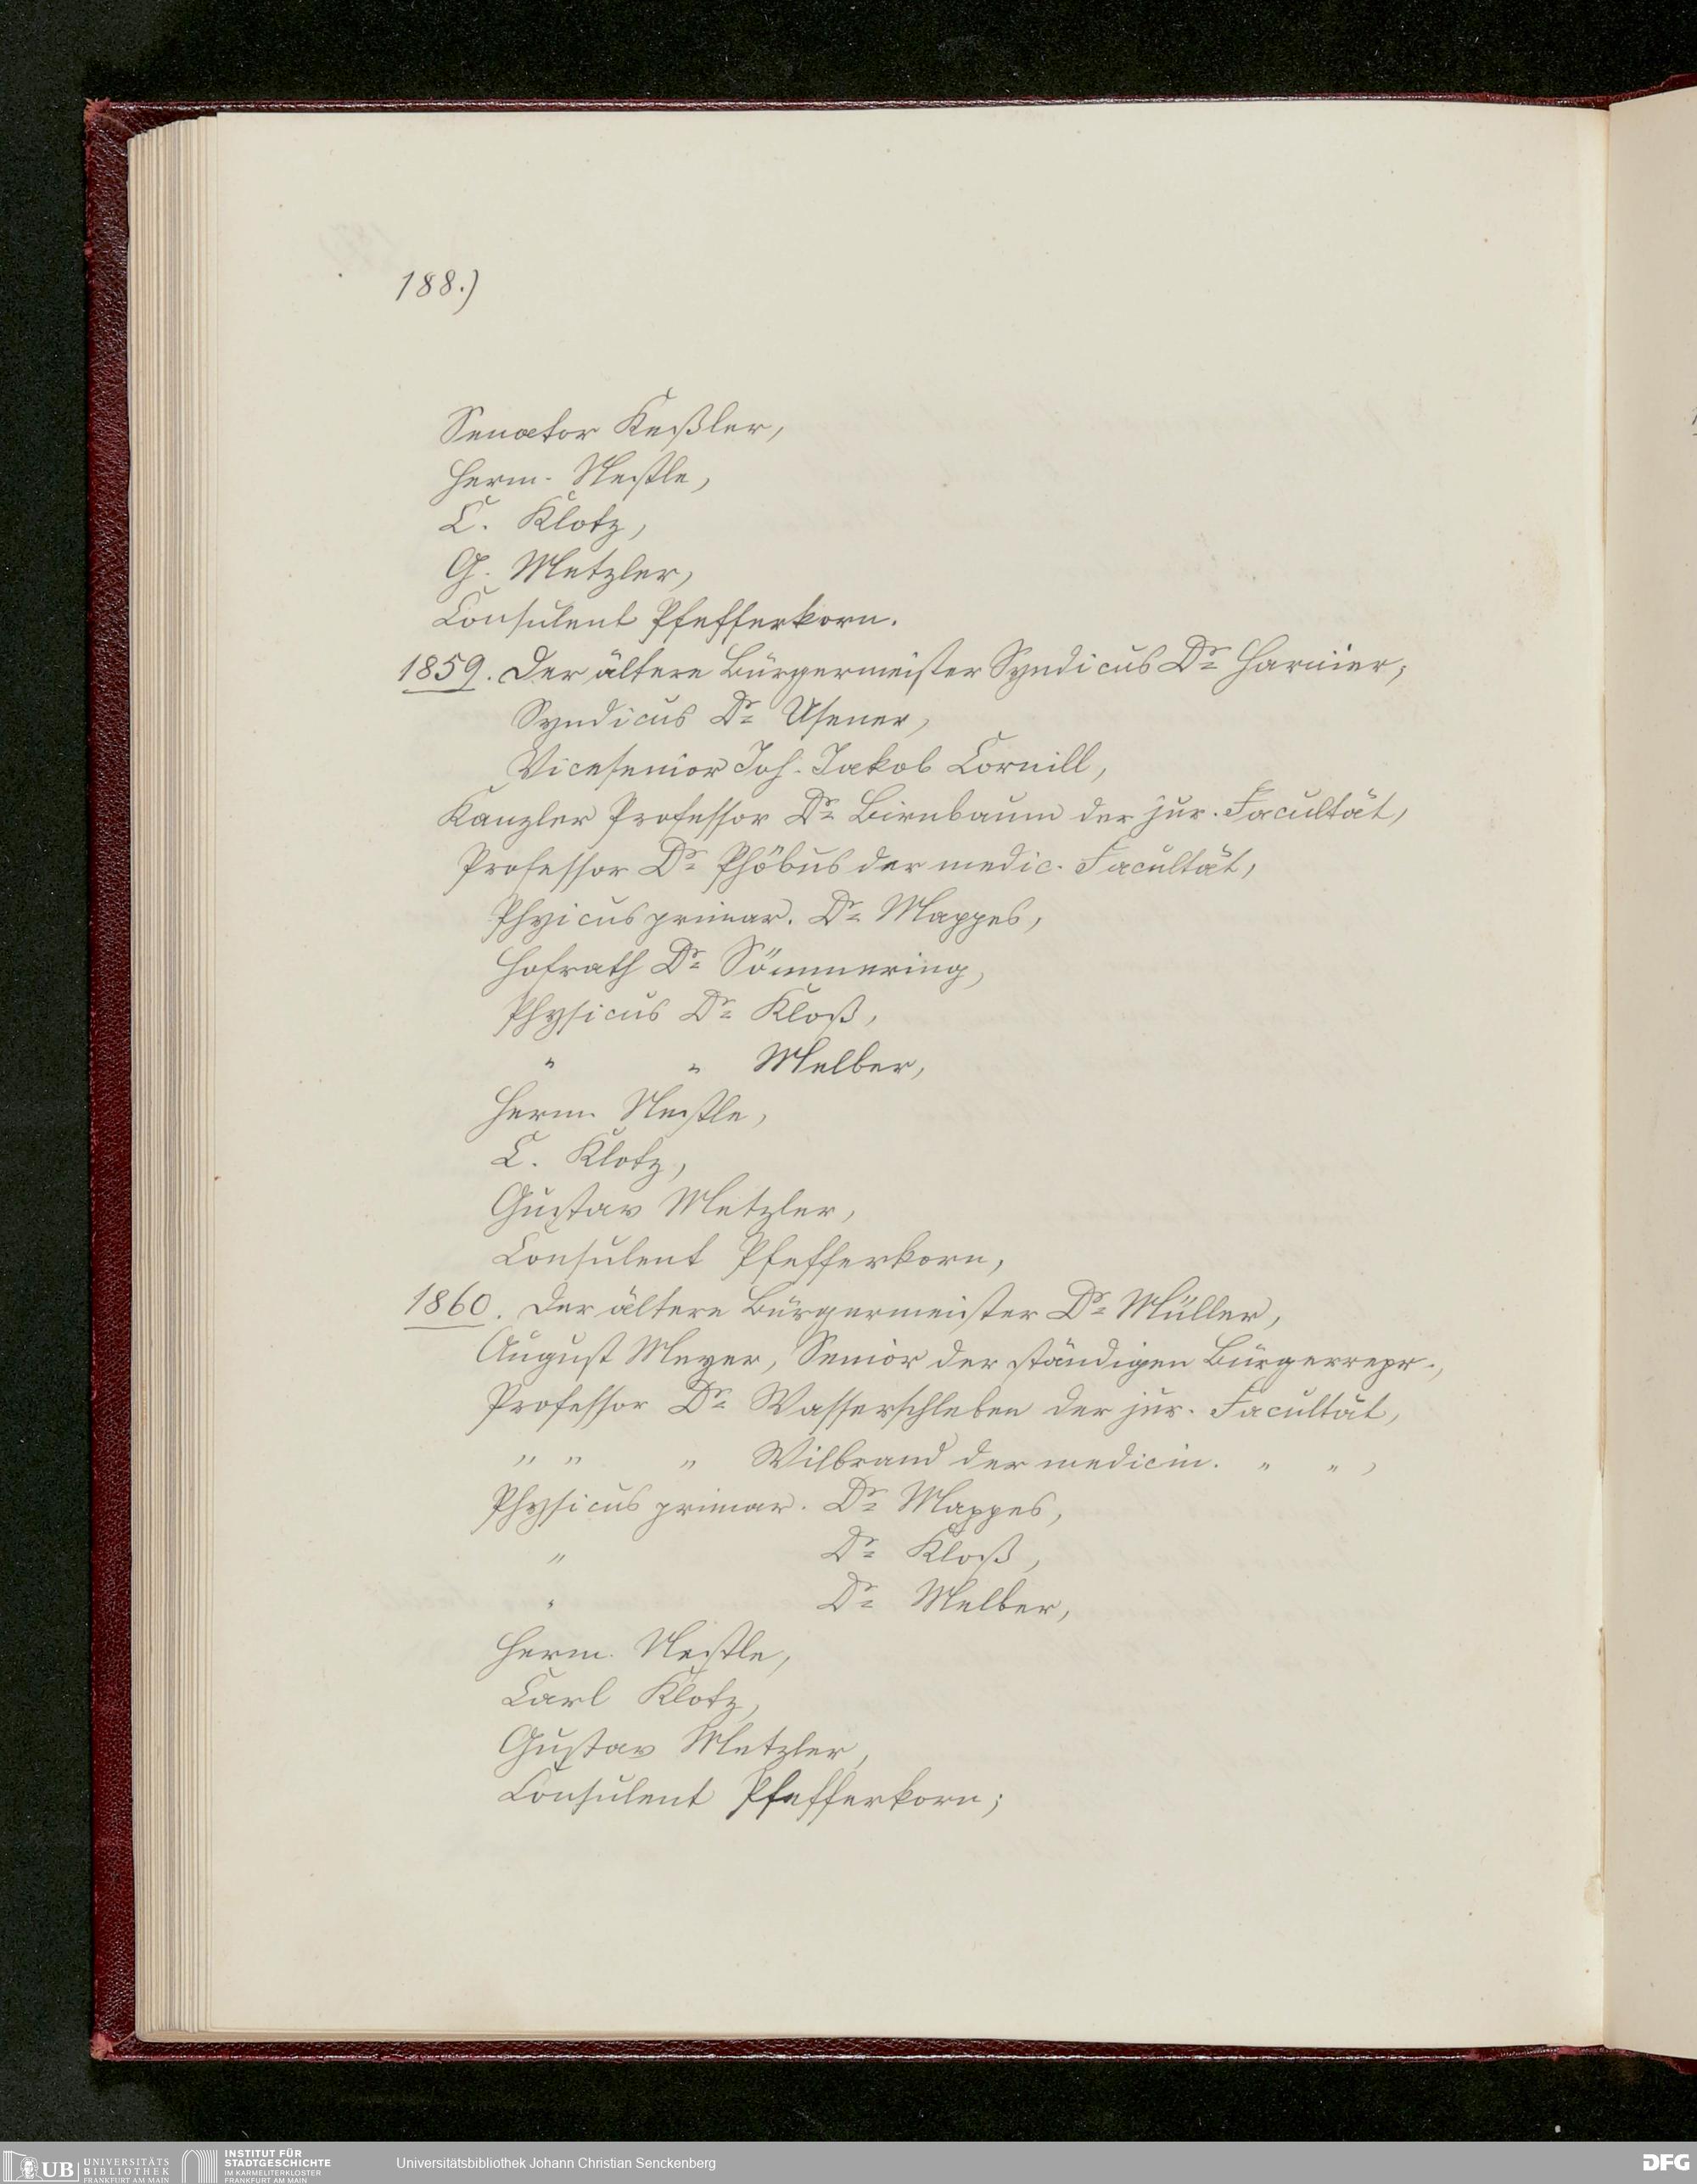 188.)
Senator Keßler,
Herm. Nestle,
C. Klotz,
G. Metzler,
Consulent Pfefferkorn.
1859. Der ältere Bürgermeister Syndicus Dr Harnier,
Syndicus Dr Usener,
Vicesenior Joh. Jakob Cornill,
Kanzler Professor Dr Birnbaum der jur. Facultät,
Professor Dr Phöbus der medic. Facultät,
Phyicus primar. Dr Mappes,
Hofrath Dr Sömmering,
Physicus Dr Kloß,
" " Melber,
Herm. Nestle,
C. Klotz,
Gustav Metzler,
Consulent Pfefferkorn,
1860. Der ältere Bürgermeister Dr Müller,
August Meyer, Senior der ständigen Bürgerrepr.,
Professor Dr Wasserschleben der jur. Facultät,
" " " Wilbrand der medicin. " " ,
Physicus primar. Dr Mappes,
" Dr Kloß,
" Dr Melber,
Herm. Nestle,
Carl Klotz,
Gustav Metzler,
Consulent Pfefferkorn;
UB
UNIVERSITÄTS
BIBLIOTHEK
FRANKFURT AM MAIN
INSTITUT FÜR
STADTGESCHICHTE
IM KARMELITERKLOSTER
FRANKFURT AM MAIN
Universitätsbibliothek Johann Christian Senckenberg
DFG